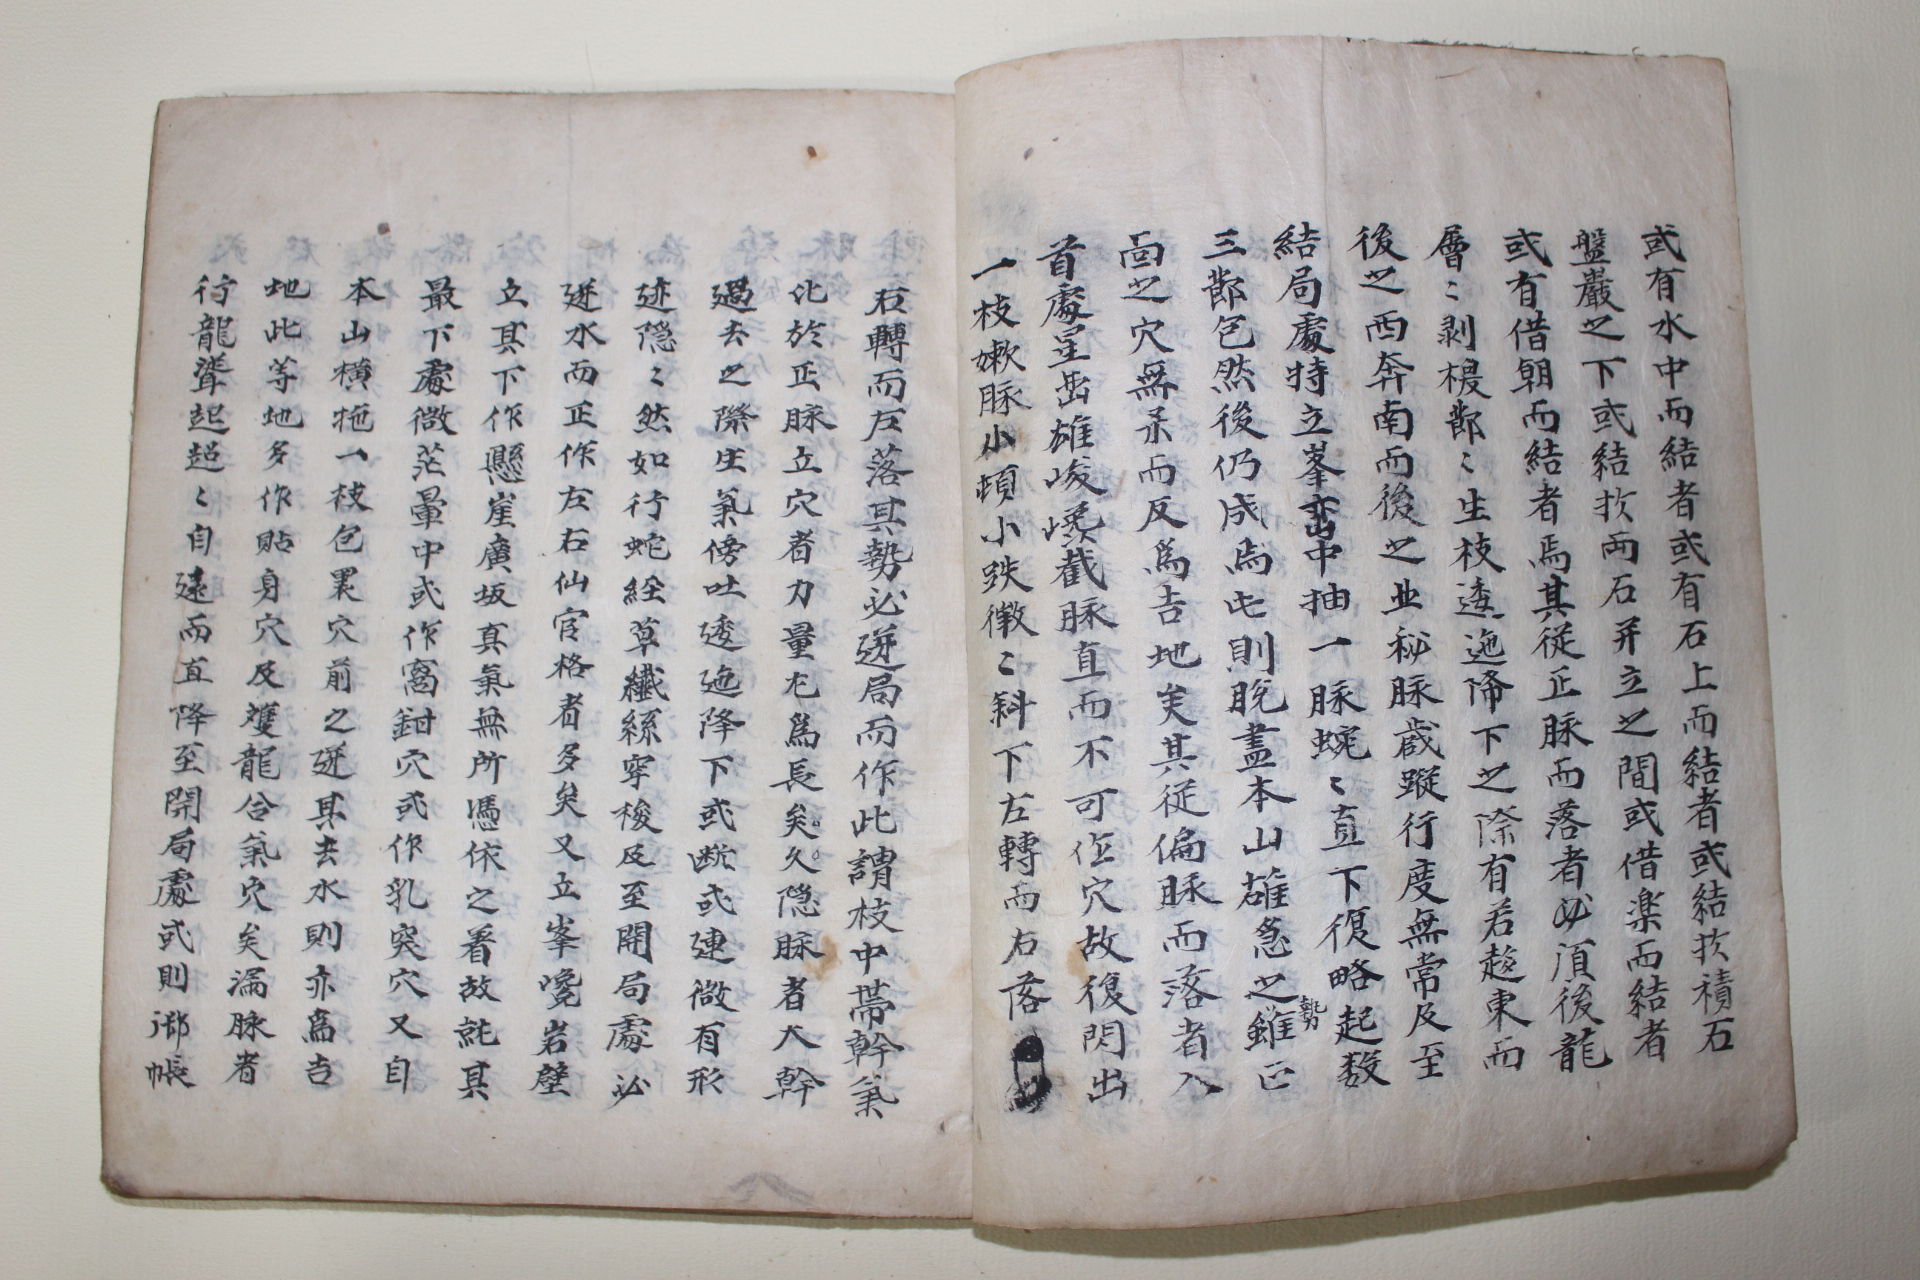 或有水中而結者或有石上而結者或結於積石
盤巖之下或結於两石并立之間或借楽而結者
或有借朝而結者焉其従正脉而落者必湏後龍
層〻剥楞節〻生枝逶迤降下之際有若趍東而
後之西奔南而後之北秘脉蔵蹤行度無常及至
結局處特立峯巒中抽一脉蜿〻直下復略起数
三節包然後仍成焉此則脫盡本山雄急之勢雖已
面之穴無呆而反爲吉地矣其従偏脉而落者入
首處星岳雄峻巉截脉直而不可作穴故復閃出
一枝嫩脉小頓小跌微〻斜下左轉而右落
右轉而左落其勢必逆局而作此謂枝中帶幹氣
化於正脉立穴者力量尤爲長矣久隐脉者大幹
過去之際生氣傍吐逶迤降下或断或連微有形
迹隐〻然如行蛇經草纖絲穿梭及至開局處必
逆水而正作左右仙官格者多矣又立峯巉岩壁
立其下作懸崖廣坂真氣無所憑依之着故就其
最下處微茫暈中或作窩鉗穴或作乳突穴又自
本山横拖一枝包裹穴前之逆其去水則亦爲吉
地此等地多作貼身穴及雙龍合氣穴矣漏脉者
行龍聳起超〻自遠而直降至開局處或則御帳